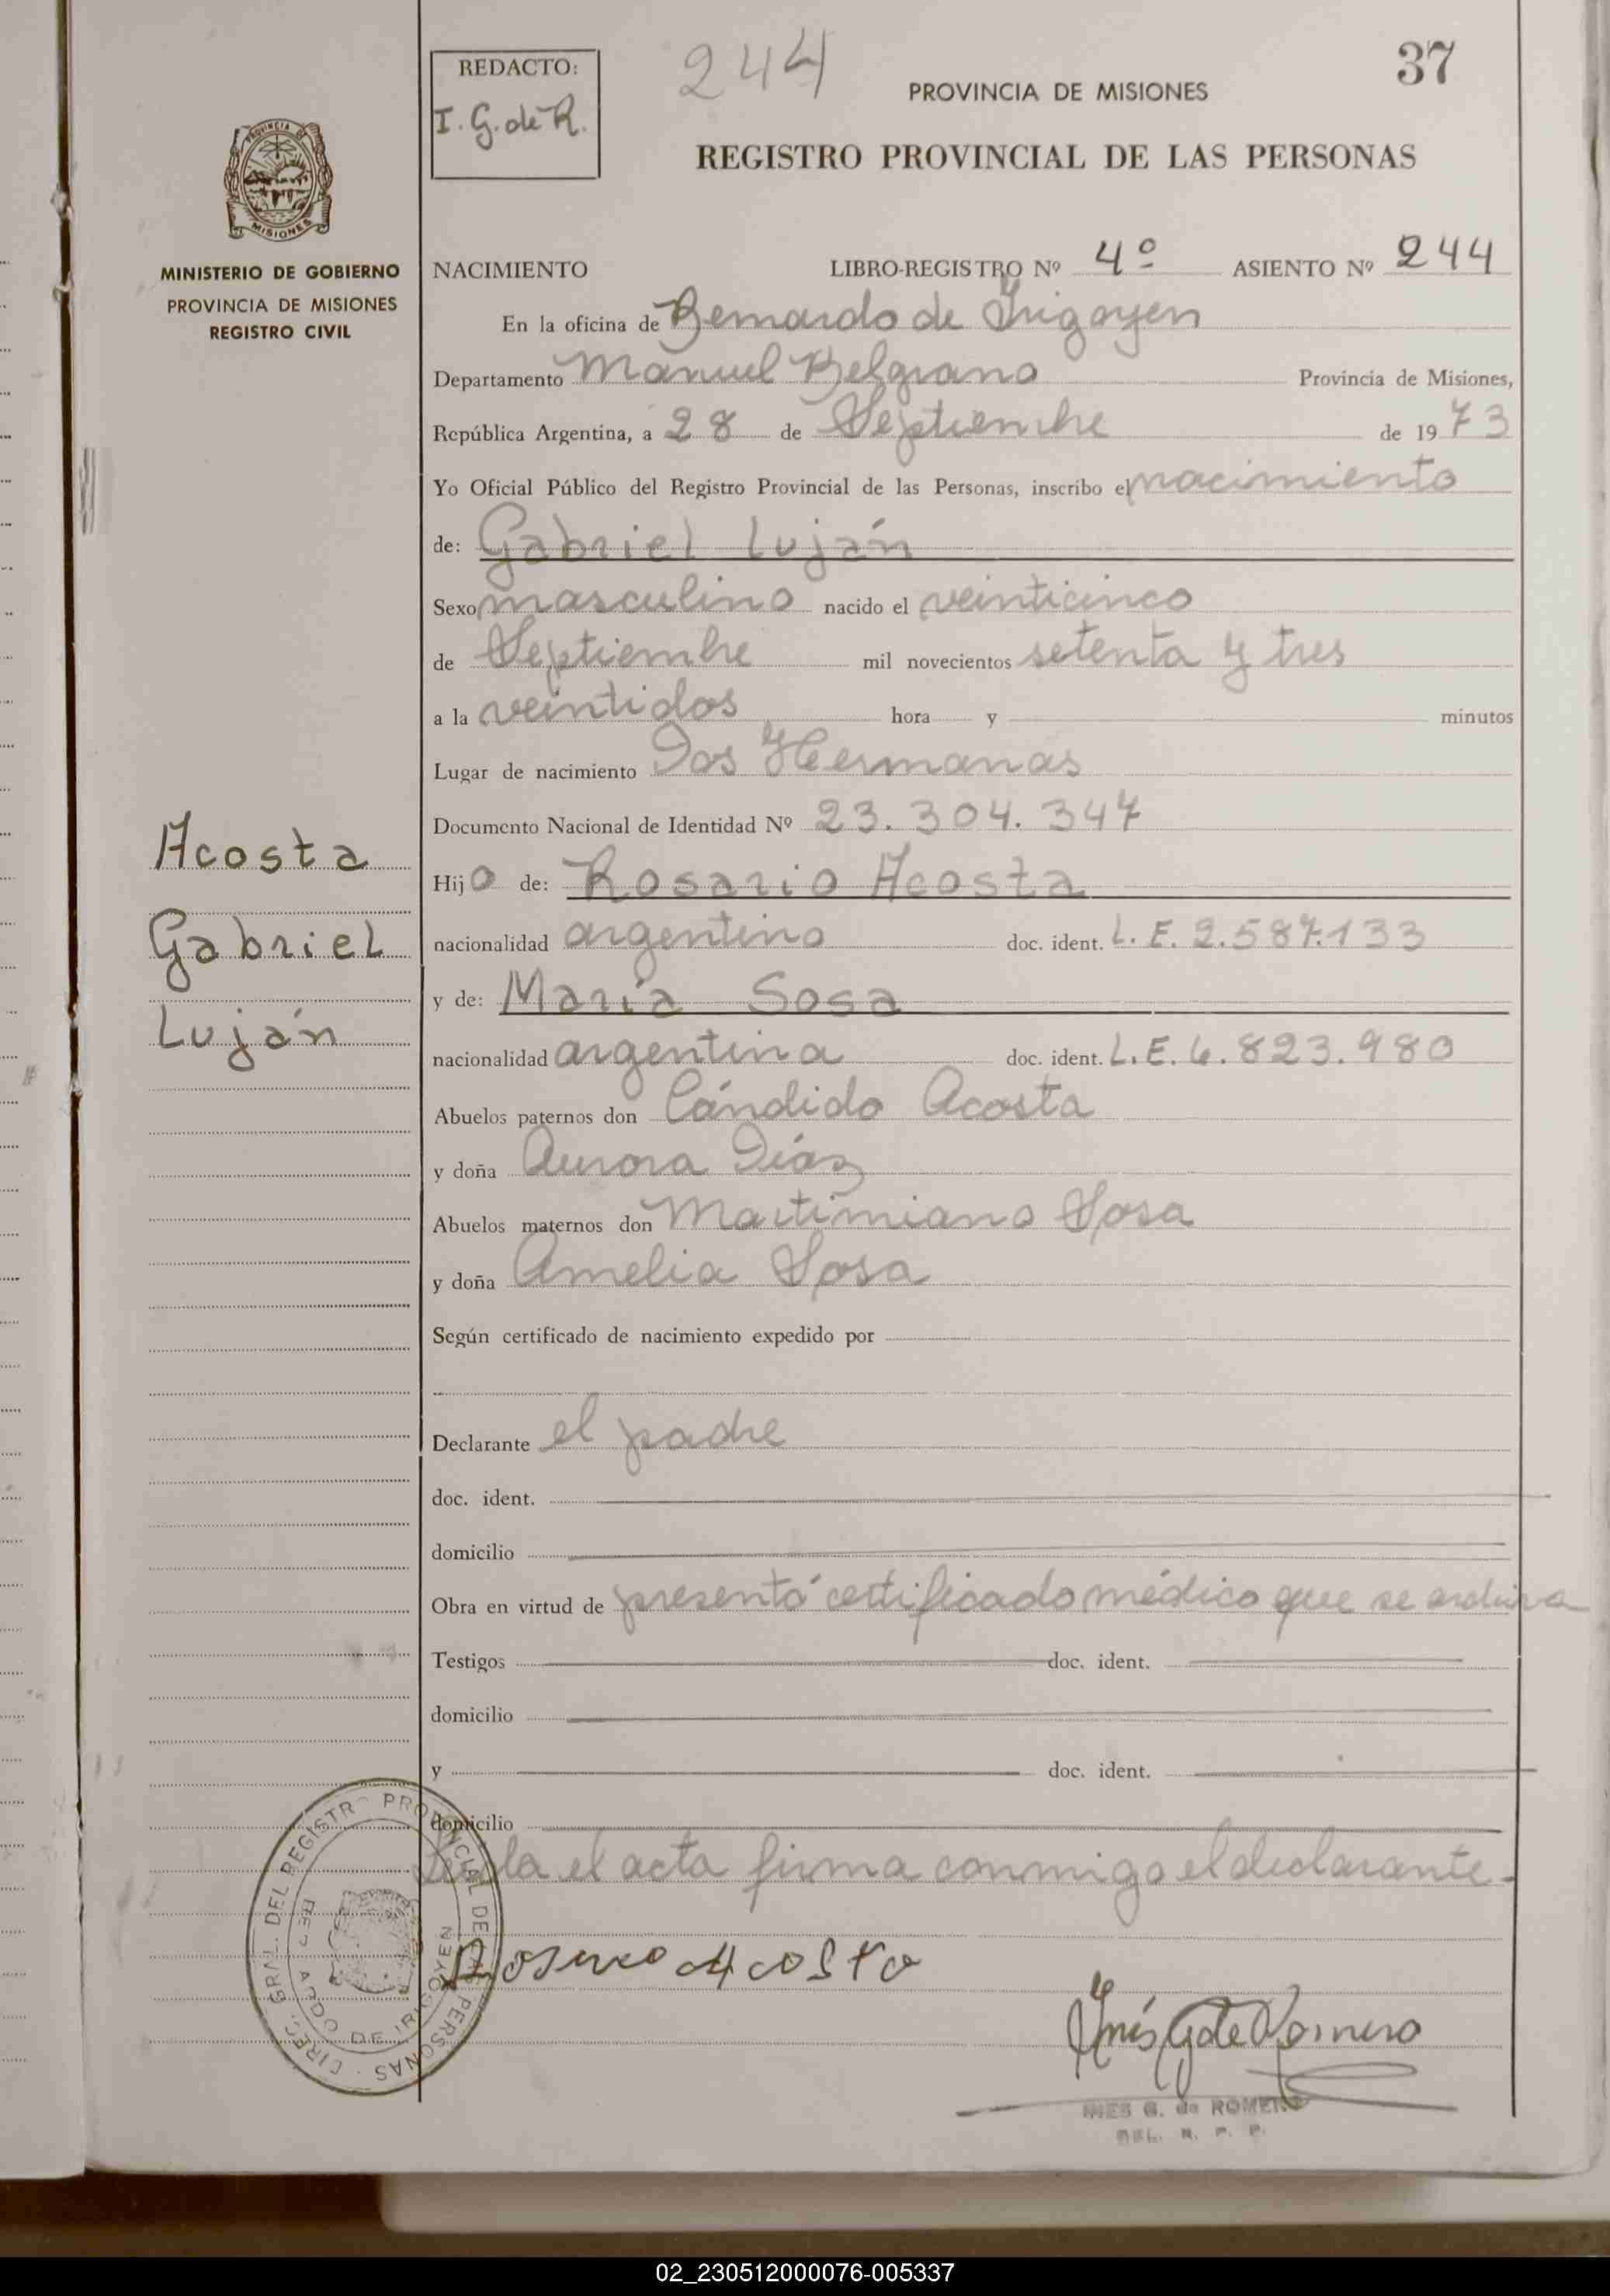 REDACTO:
I. G. de R.
244
37
PROVINCIA DE MISIONES
REGISTRO PROVINCIAL DE LAS PERSONAS
MISIONES
MINISTERIO DE GOBIERNO
PROVINCIA DE MISIONES
REGISTRO CIVIL
NACIMIENTO LIBRO-REGISTRO Nº 4º ASIENTO Nº 244
En la oficina de Bernardo de Irigoyen
Departamento Manuel Belgrano Provincia de Misiones,
República Argentina, a 28 de Septiembre de 1973
Yo Oficial Público del Registro Provincial de las Personas, inscribo el nacimiento
de: Gabriel Luján
Sexo masculino nacido el veinticinco
de Septiembre mil novecientos setenta y tres
a la veintidos hora y minutos
Lugar de nacimiento Dos Hermanas
Documento Nacional de Identidad Nº 23.304.347
Acosta
Gabriel
Luján
Hijo de: Rosario Acosta
nacionalidad argentino doc. ident. L. E. 2.587.133
y de: María Sosa
nacionalidad argentina doc. ident. L. E. 6.823.980
Abuelos paternos don Cándido Acosta
y doña Aurora Diáz
Abuelos maternos don Martimiano Sosa
y doña Amelia Sosa
Según certificado de nacimiento expedido por
Declarante el padre
doc. ident.
domicilio
Obra en virtud de presentó certificado médico que se archiva
Testigos doc. ident.
domicilio
y doc. ident.
domicilio
Leída el acta firma conmigo el declarante.-
DIREC. GRAL. DEL REGISTRO PROVINCIAL DE LAS PERSONAS
DE IRIGOYEN
Rosario Acosta
Inés G de Romero
INES G. de ROMERO
DEL. R. P. P.
02_230512000076-005337